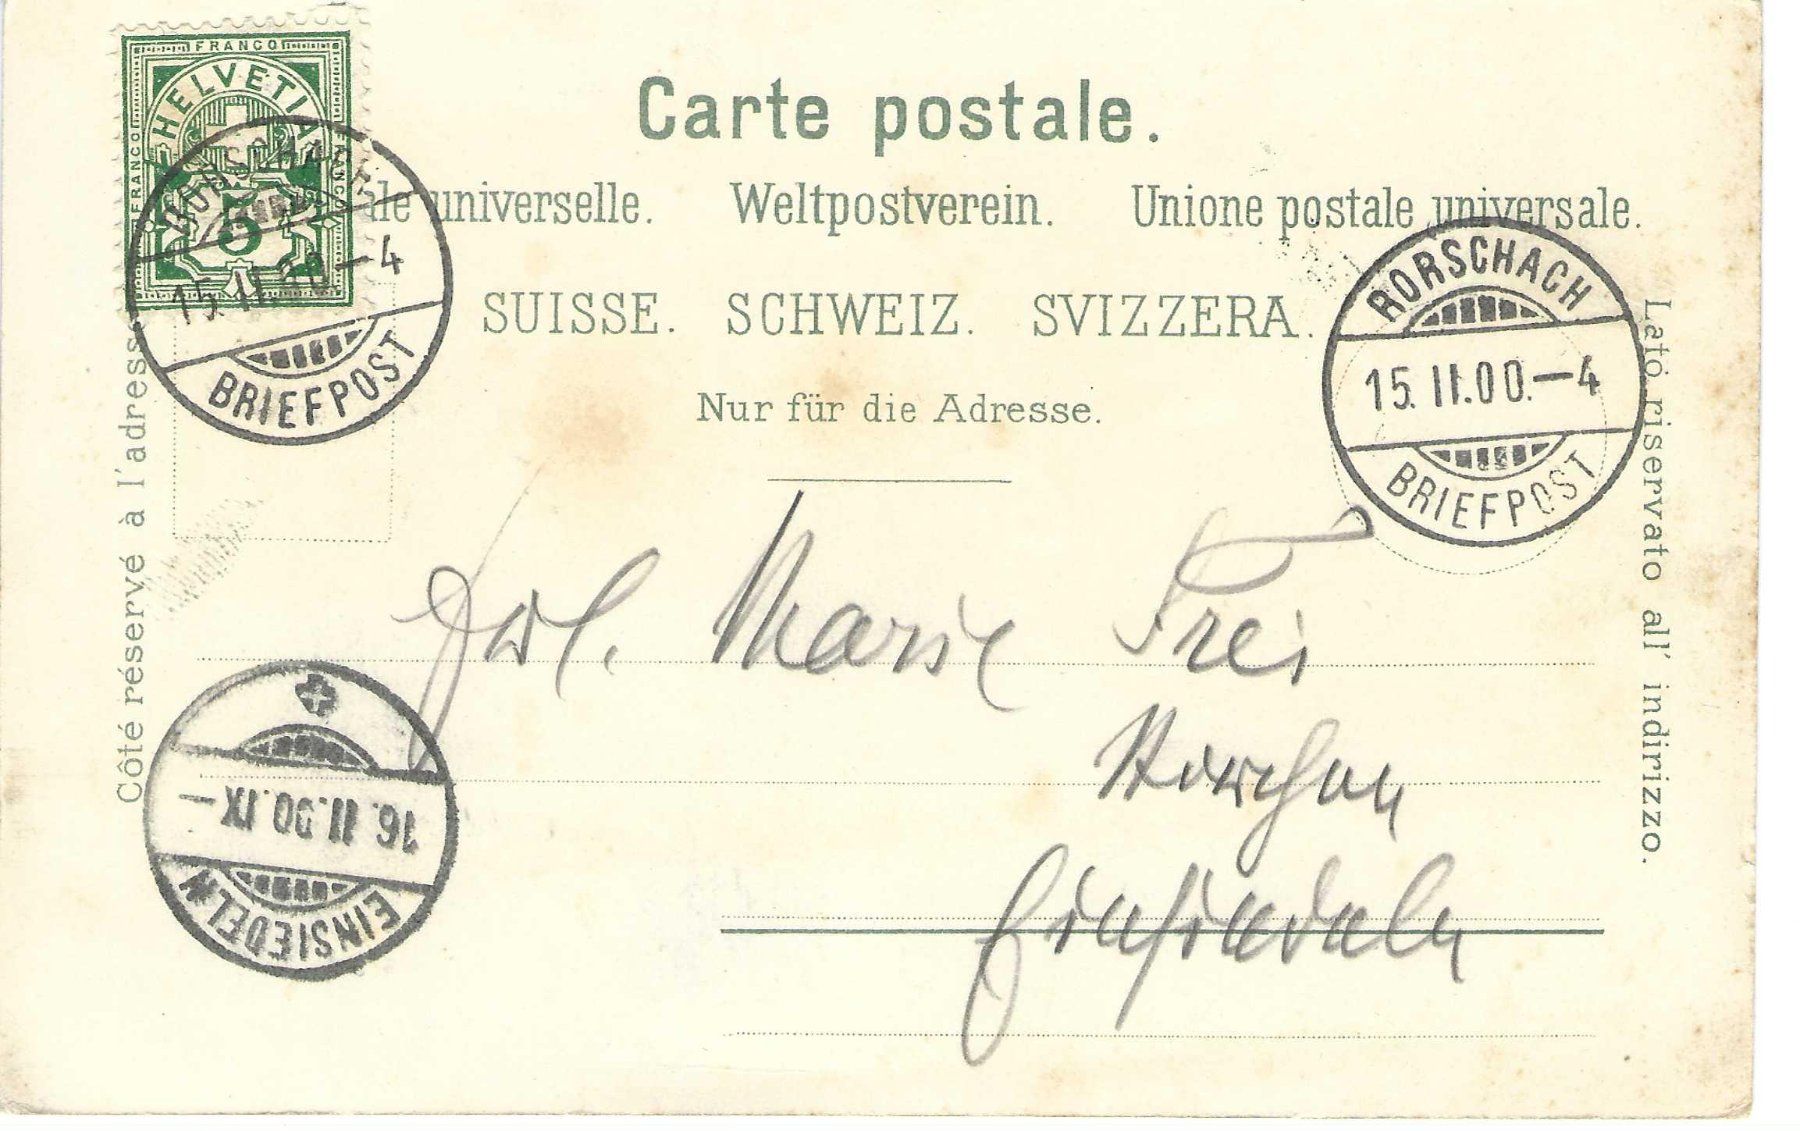 FRANCO
HELVETIA
FRANCO
FRANCO
5
Carte postale.
ale universelle. Weltpostverein. Unione postale universale.
SUISSE. SCHWEIZ. SVIZZERA.
Nur für die Adresse.
RORSCHACH
15.II.00.–4
BRIEFPOST
RORSCHACH
15.II.00.–4
BRIEFPOST
Côté réservé à l'adresse
Lato riservato all' indirizzo.
Frl. Marie Frei
Einsiedeln
16.II.00.IX–
EINSIEDELN